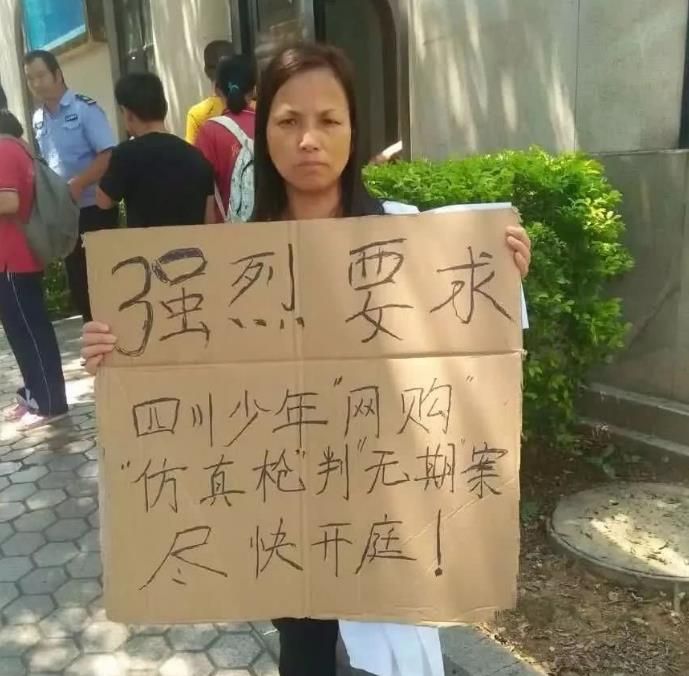 强烈要求
四川少年"网购"
"仿真枪"判"无期"案
尽快开庭!